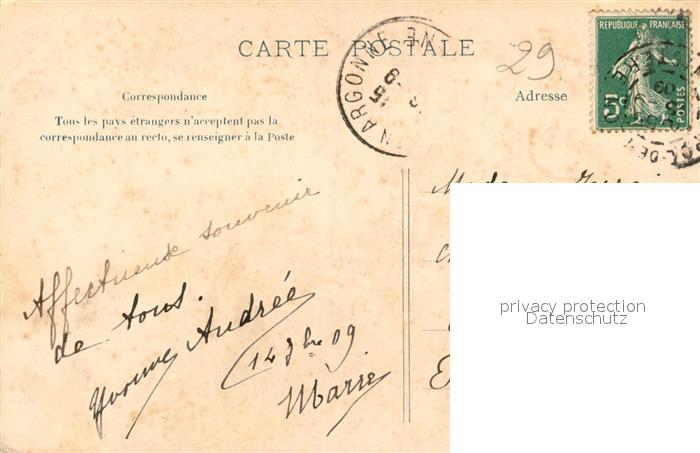 CARTE POSTALE
29
REPUBLIQUE FRANÇAISE
5c
ARGONNE
15
Correspondance
Adresse
Tous les pays étrangers n'acceptent pas la
correspondance au recto, se renseigner à la Poste
Affectueux souvenir
de tous.
Yvonne Andrée
14 8bre 09
Marie
privacy protection
Datenschutz